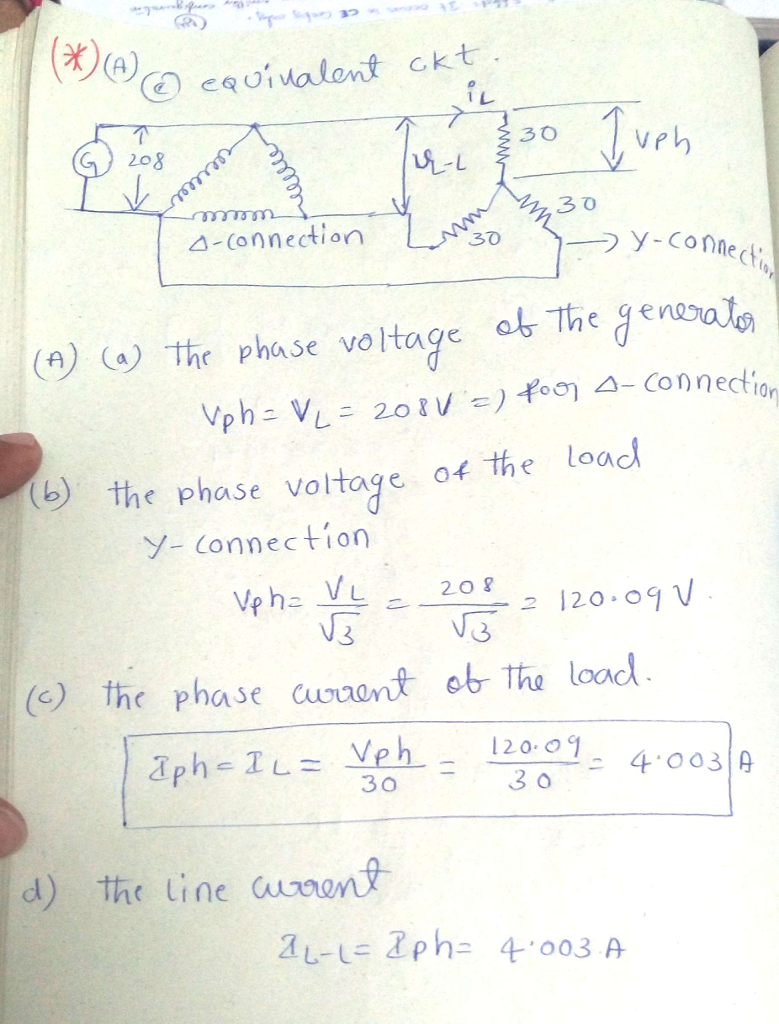 (*) (A) (e) equivalent ckt.
iL
G 208 VL-L 30 Vph
30
30
Δ-connection → Y-connection
(A) (a) The phase voltage of the generator
Vph = VL = 208V => for Δ-connection
(b) the phase voltage of the load
Y-connection
Vph = VL/√3 = 208/√3 = 120.09 V.
(c) the phase current of the load.
Iph = IL = Vph/30 = 120.09/30 = 4.003 A
d) the line current
IL-L = Iph = 4.003 A